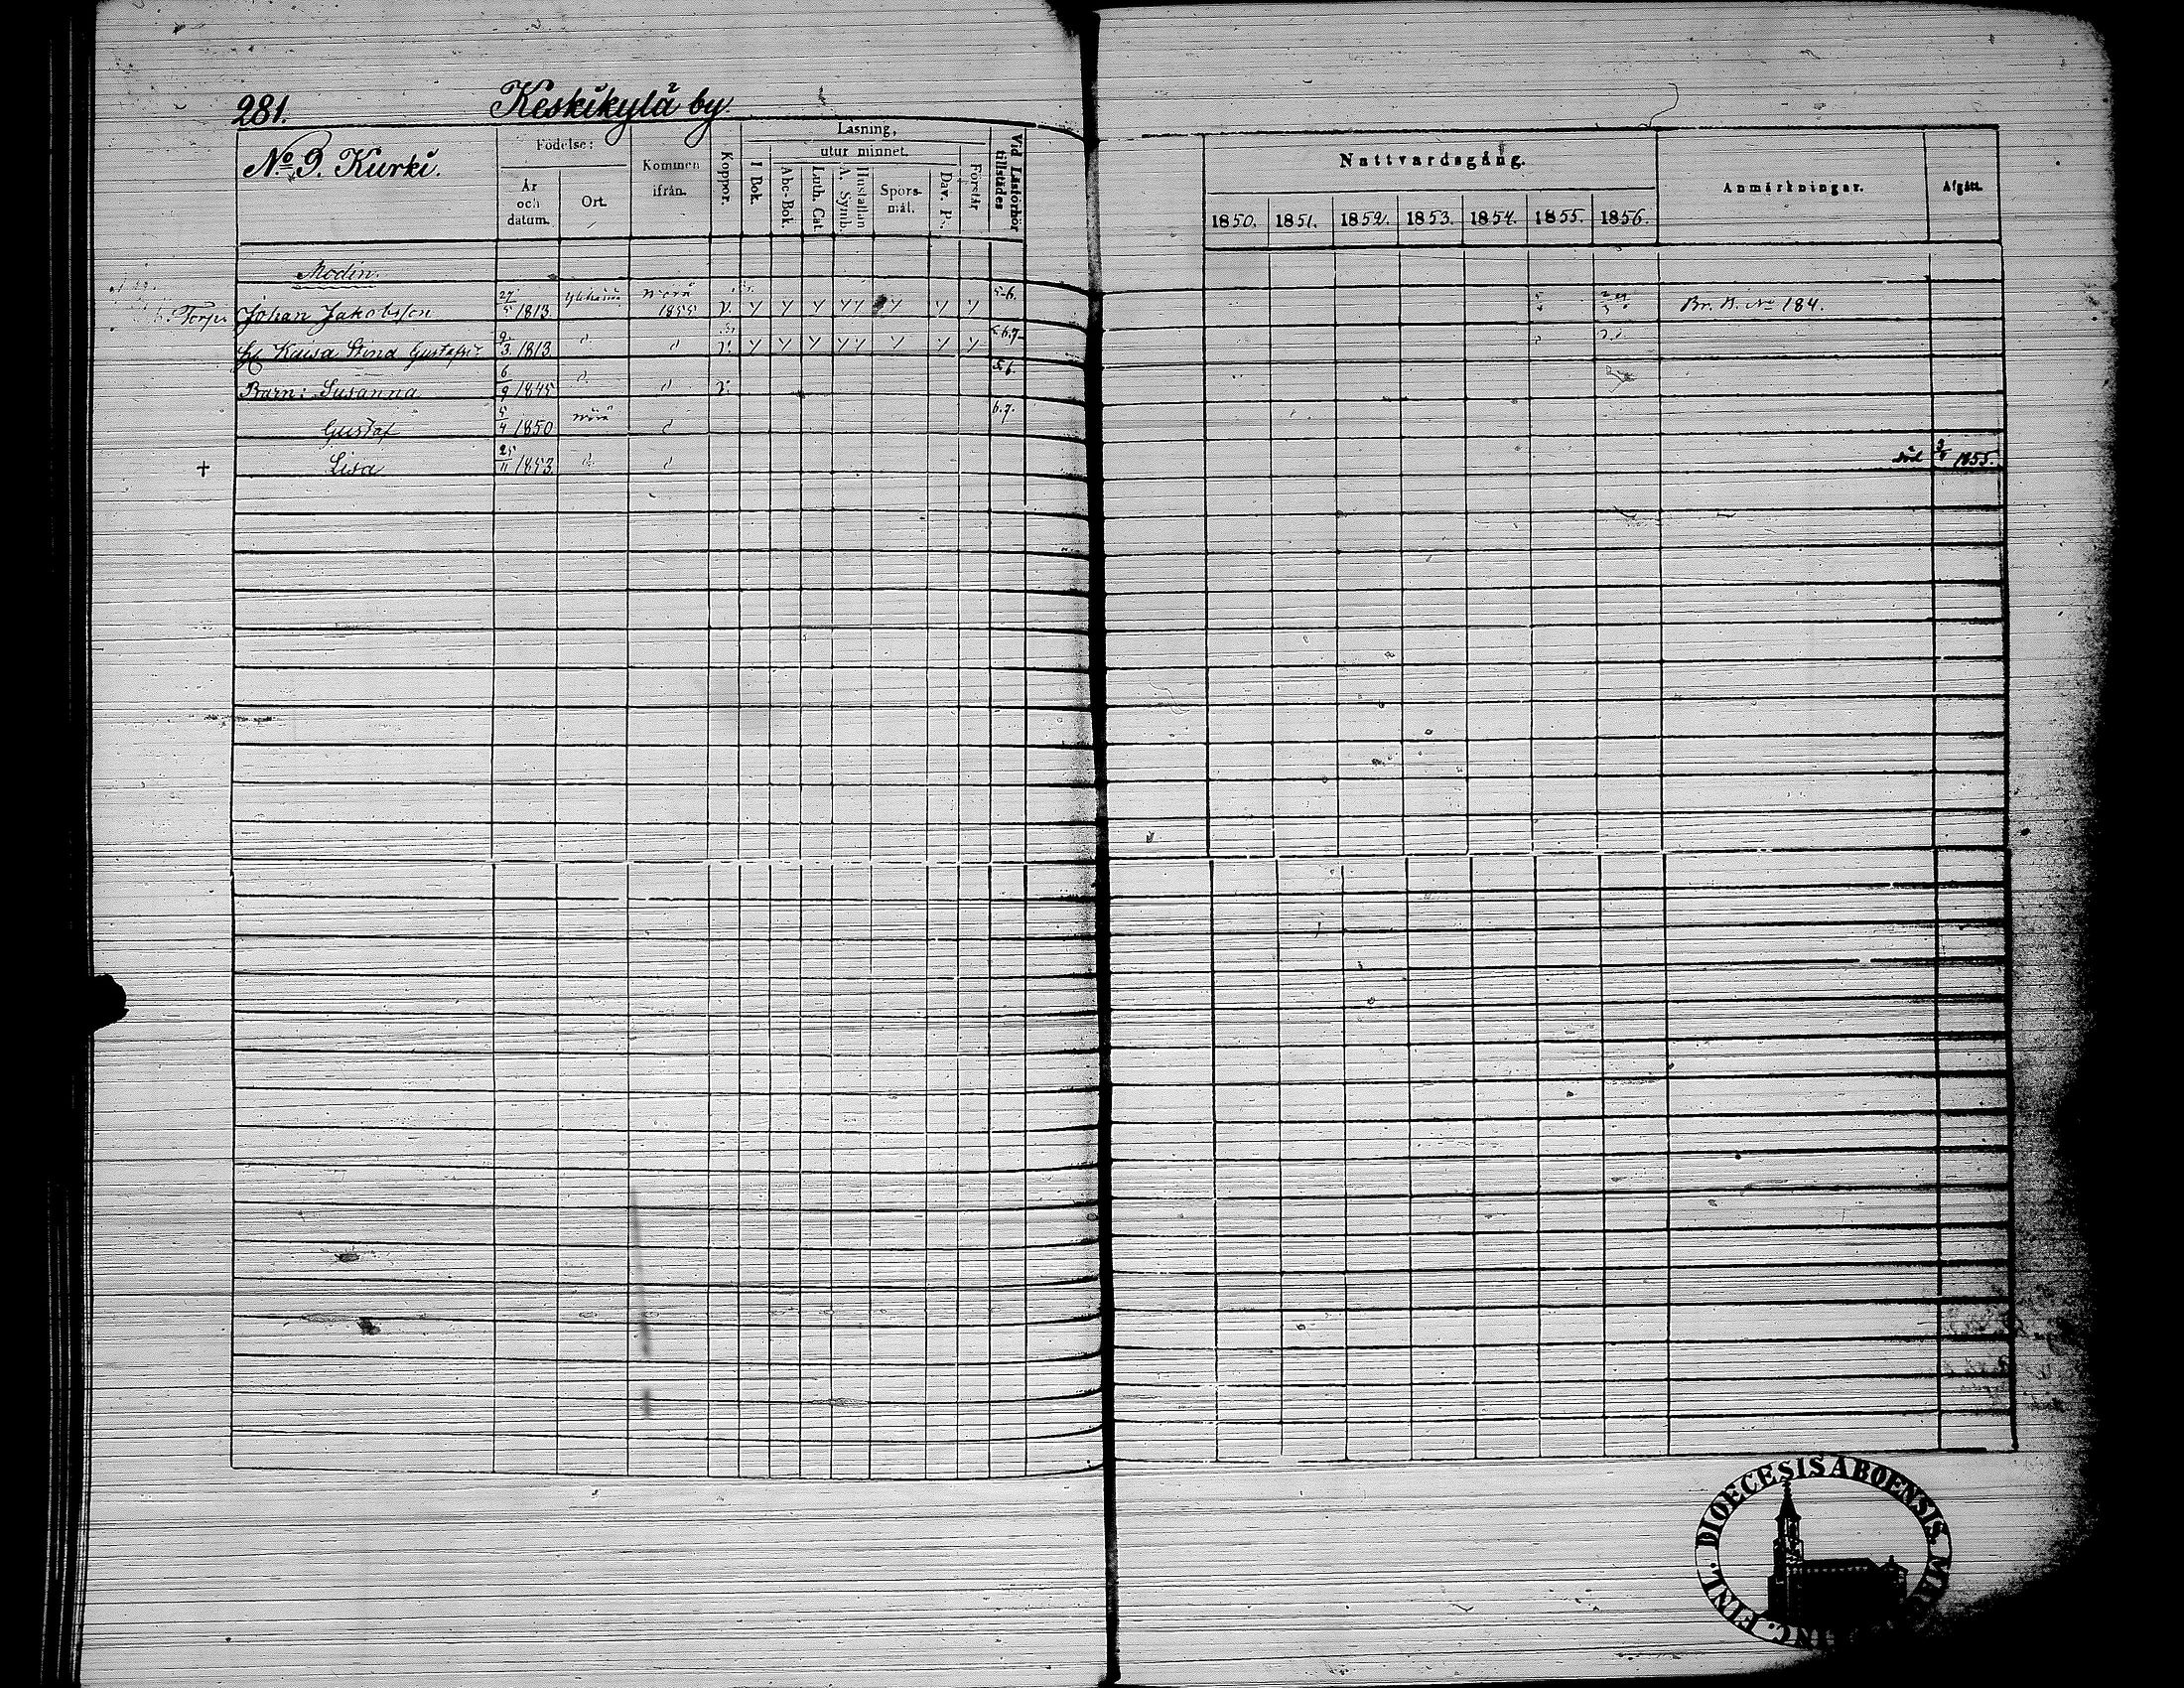 281. Keskikylä by.
No 9. Kurki.
Födelse:
År och datum.
Ort.
Kommen ifrån.
Koppor.
Läsning,
I Bok.
utur minnet.
Abc-Bok.
Luth. Cat.
Hustaflan A. Symb.
Spörsmål.
Dav. P.
Förstår
Vid Läsförhör tillstädes
Nattvardsgång.
1850. 1851. 1852. 1853. 1854. 1855. 1856.
Anmärkningar.
Afgått.
Modin.
Torp. Johan Jakobsson 27/5 1813 1855 v. 5-6. Br. B. No 184.
Kaisa Stina Gustafsd 9/3 1813 d d v. 5.6.7.
Barn: Susanna 6/9 1845 d d v. 5.6.
Gustaf 5/4 1850 d 6.7.
+ Lisa 25/11 1853 d d död 1855.
DIOECESIS ABOENSIS. FINL.